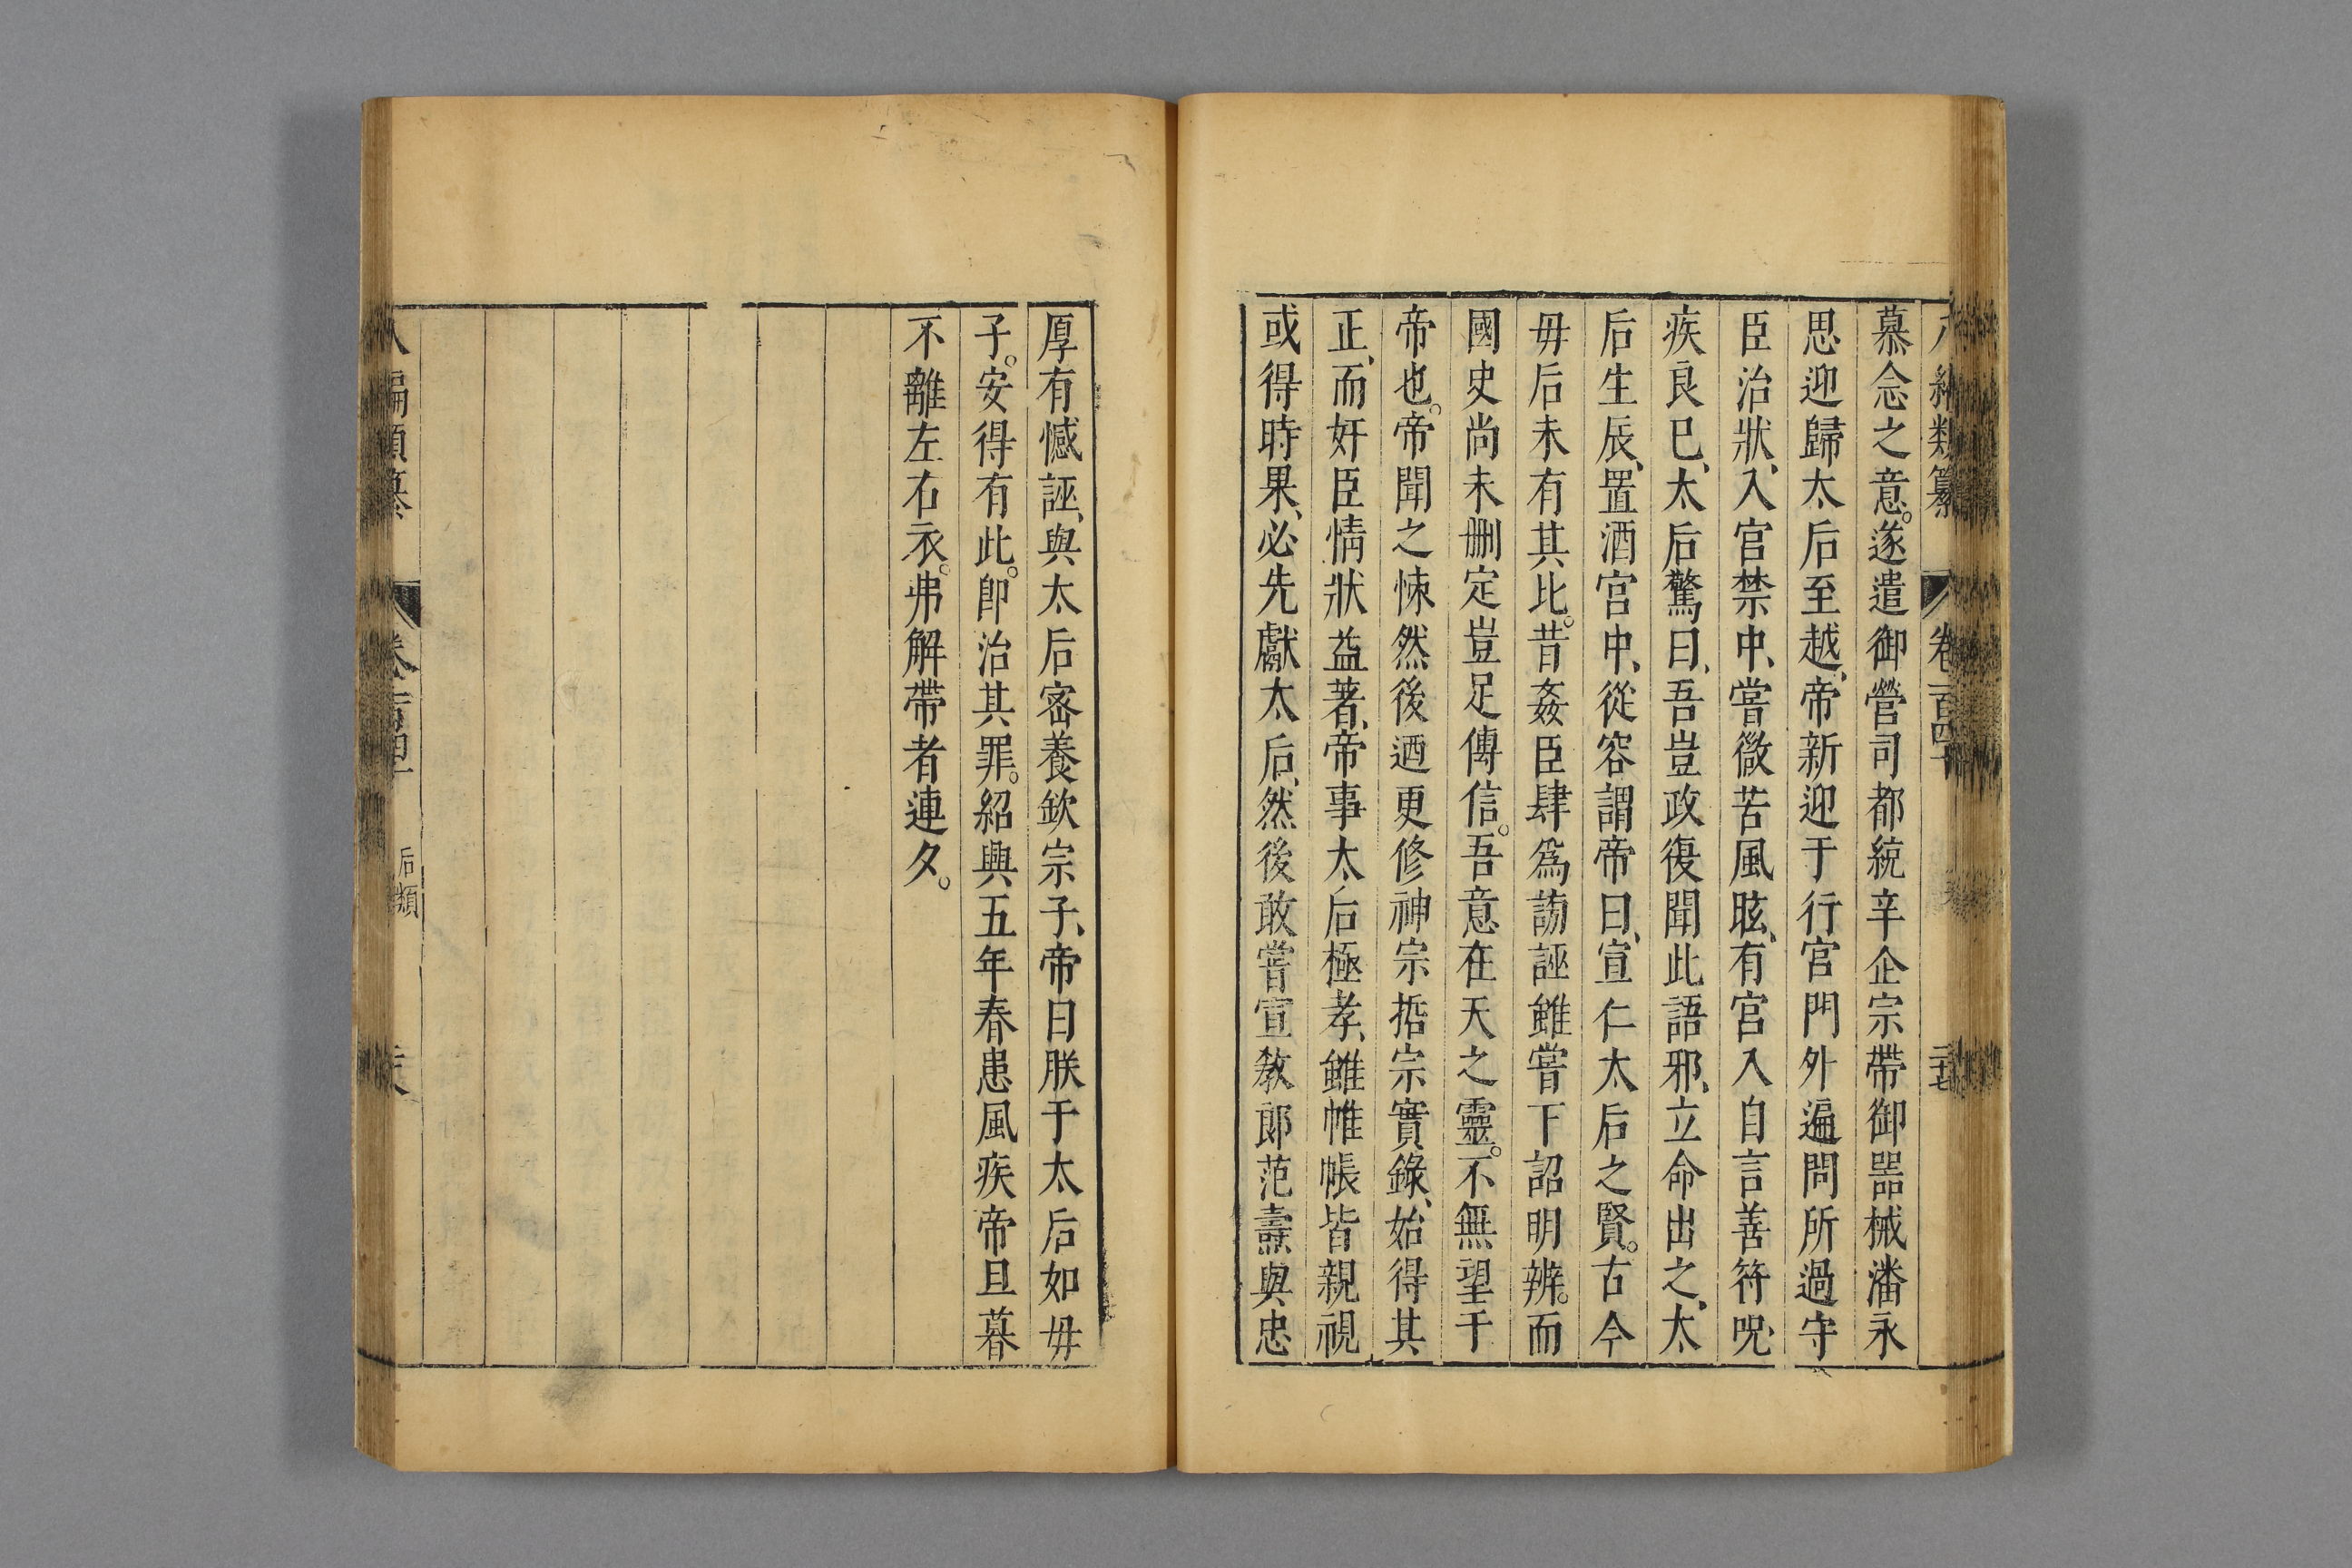 慕念之意。遂遣御營司都統辛企宗帶御噐械潘永
思迎歸太后至越、帝新迎于行宫門外遍問所過守
臣治狀、入宫禁中、嘗微苦風眩、有宫人自言善符呪、
疾良已、太后驚曰、吾豈政復聞此語邪、立命出之、太
后生辰、置酒宫中、從容謂帝曰、宣仁太后之賢。古今
毋后未有其比。昔姦臣肆爲謗誣雖嘗下詔明辨。而
國史尚未刪定豈足傳信。吾意在天之靈。不無望于
帝也。帝聞之悚然後迺更修神宗哲宗實錄、始得其
正、而奸臣情狀益著、帝事太后極孝、雖帷帳皆親視
或得時果、必先獻太后、然後敢嘗宣教郎范燾與忠
厚有憾誣、與太后密養欽宗子、帝曰朕于太后如毋
子。安得有此。卽治其罪。紹興五年春患風疾帝旦暮
不離左右衣。弗解帶者連夕。
編類纂
后類